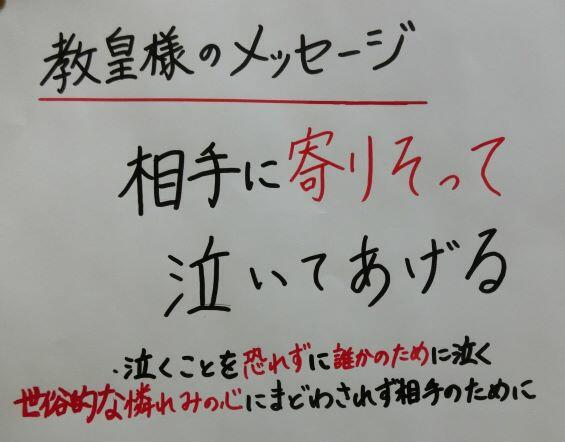 教皇様のメッセージ
相手に寄りそって
泣いてあげる
・泣くことを恐れずに誰かのために泣く
世俗的な憐れみの心にまどわされず相手のために